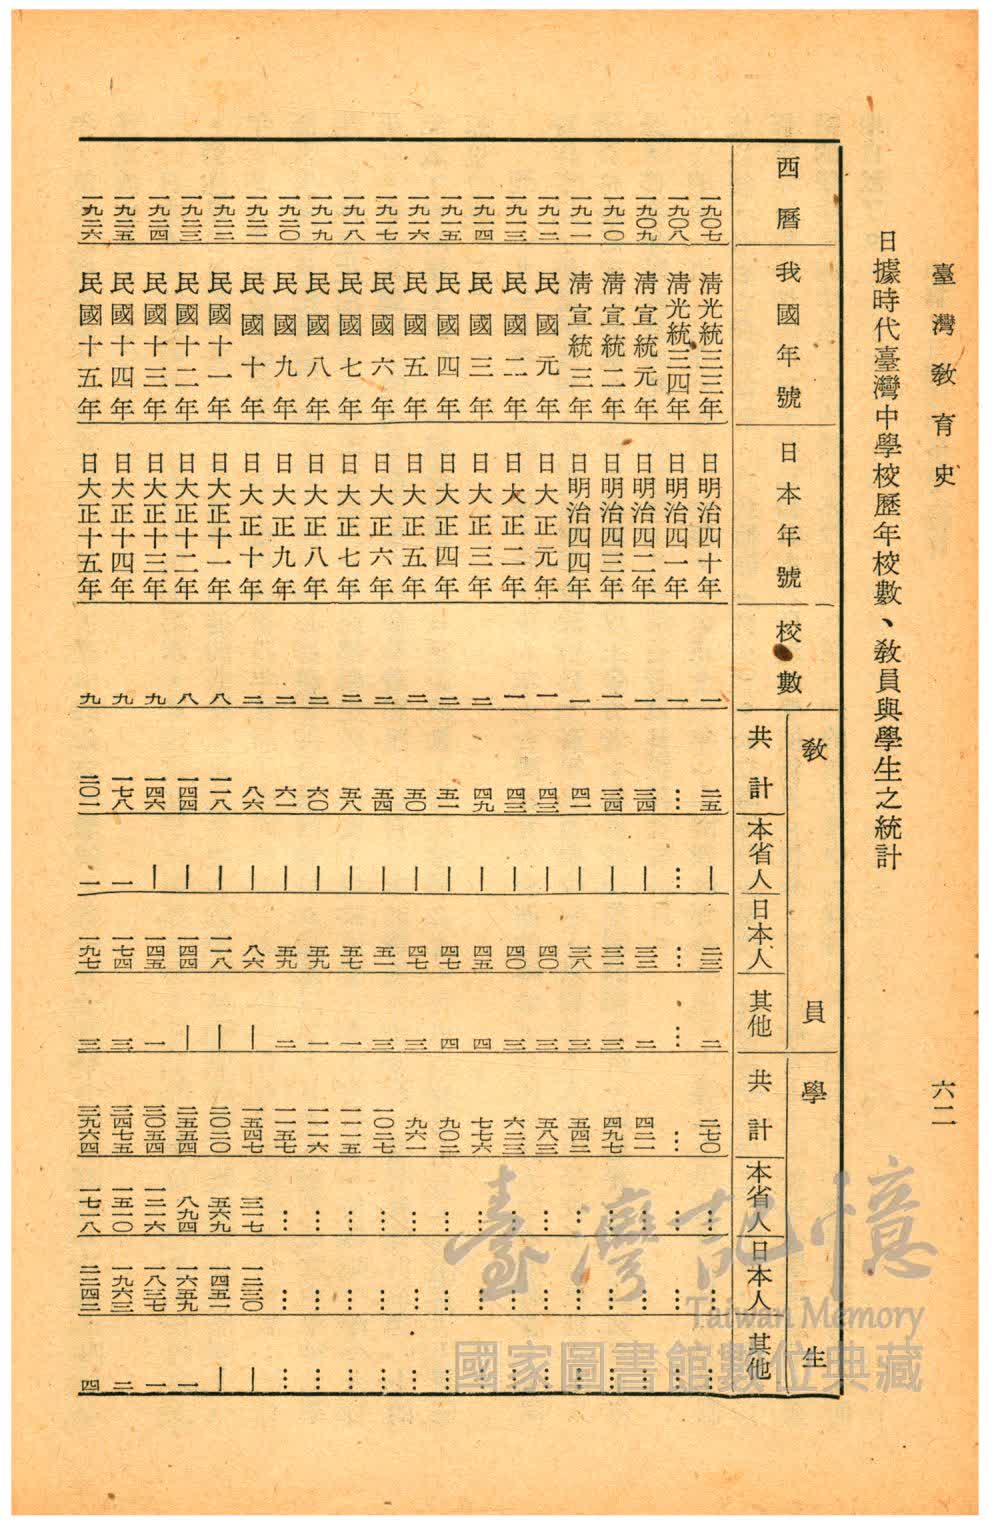 臺灣教育史
六二
日據時代臺灣中學校歷年校數、教員與學生之統計
教員 學生
西曆 我國年號 日本年號 校數 共計 本省人 日本人 其他 共計 本省人 日本人 其他
一九〇七 清光統三三年 日明治四十年 一 二五 — 二三 二 二七〇 … … …
一九〇八 清光統三四年 日明治四一年 一 … … … … … … … …
一九〇九 清宣統元年 日明治四二年 一 三四 — 三二 二 四二一 … … …
一九一〇 清宣統二年 日明治四三年 一 三四 — 三一 三 四九七 … … …
一九一一 清宣統三年 日明治四四年 一 四一 — 三八 三 五四二 … … …
一九一二 民國元年 日大正元年 一 四三 — 四〇 三 五八三 … … …
一九一三 民國二年 日大正二年 一 四三 — 四〇 三 六二三 … … …
一九一四 民國三年 日大正三年 二 四九 — 四五 四 七七六 … … …
一九一五 民國四年 日大正四年 二 五一 — 四七 四 九〇二 … … …
一九一六 民國五年 日大正五年 二 五〇 — 四七 三 九六一 … … …
一九一七 民國六年 日大正六年 二 五四 — 五一 三 一〇二七 … … …
一九一八 民國七年 日大正七年 二 五八 — 五七 一 一一一五 … … …
一九一九 民國八年 日大正八年 二 六〇 — 五九 一 一一一六 … … …
一九二〇 民國九年 日大正九年 二 六一 — 五九 二 一一五七 … … …
一九二一 民國十年 日大正十年 二 八六 — 八六 — 一五四七 三一七 一二三〇 —
一九二二 民國十一年 日大正十一年 八 一一八 — 一一八 — 二〇二〇 五六九 一四五一 —
一九二三 民國十二年 日大正十二年 八 一四四 — 一四四 — 二五五四 八九四 一六五九 一
一九二四 民國十三年 日大正十三年 九 一四六 — 一四五 一 三〇五四 一二一六 一八三七 一
一九二五 民國十四年 日大正十四年 九 一七八 一 一七四 三 三四七五 一五一〇 一九六三 二
一九二六 民國十五年 日大正十五年 九 二〇一 一 一九七 三 三九六四 一七一八 二二四二 四
臺灣記憶
Taiwan Memory
國家圖書館數位典藏